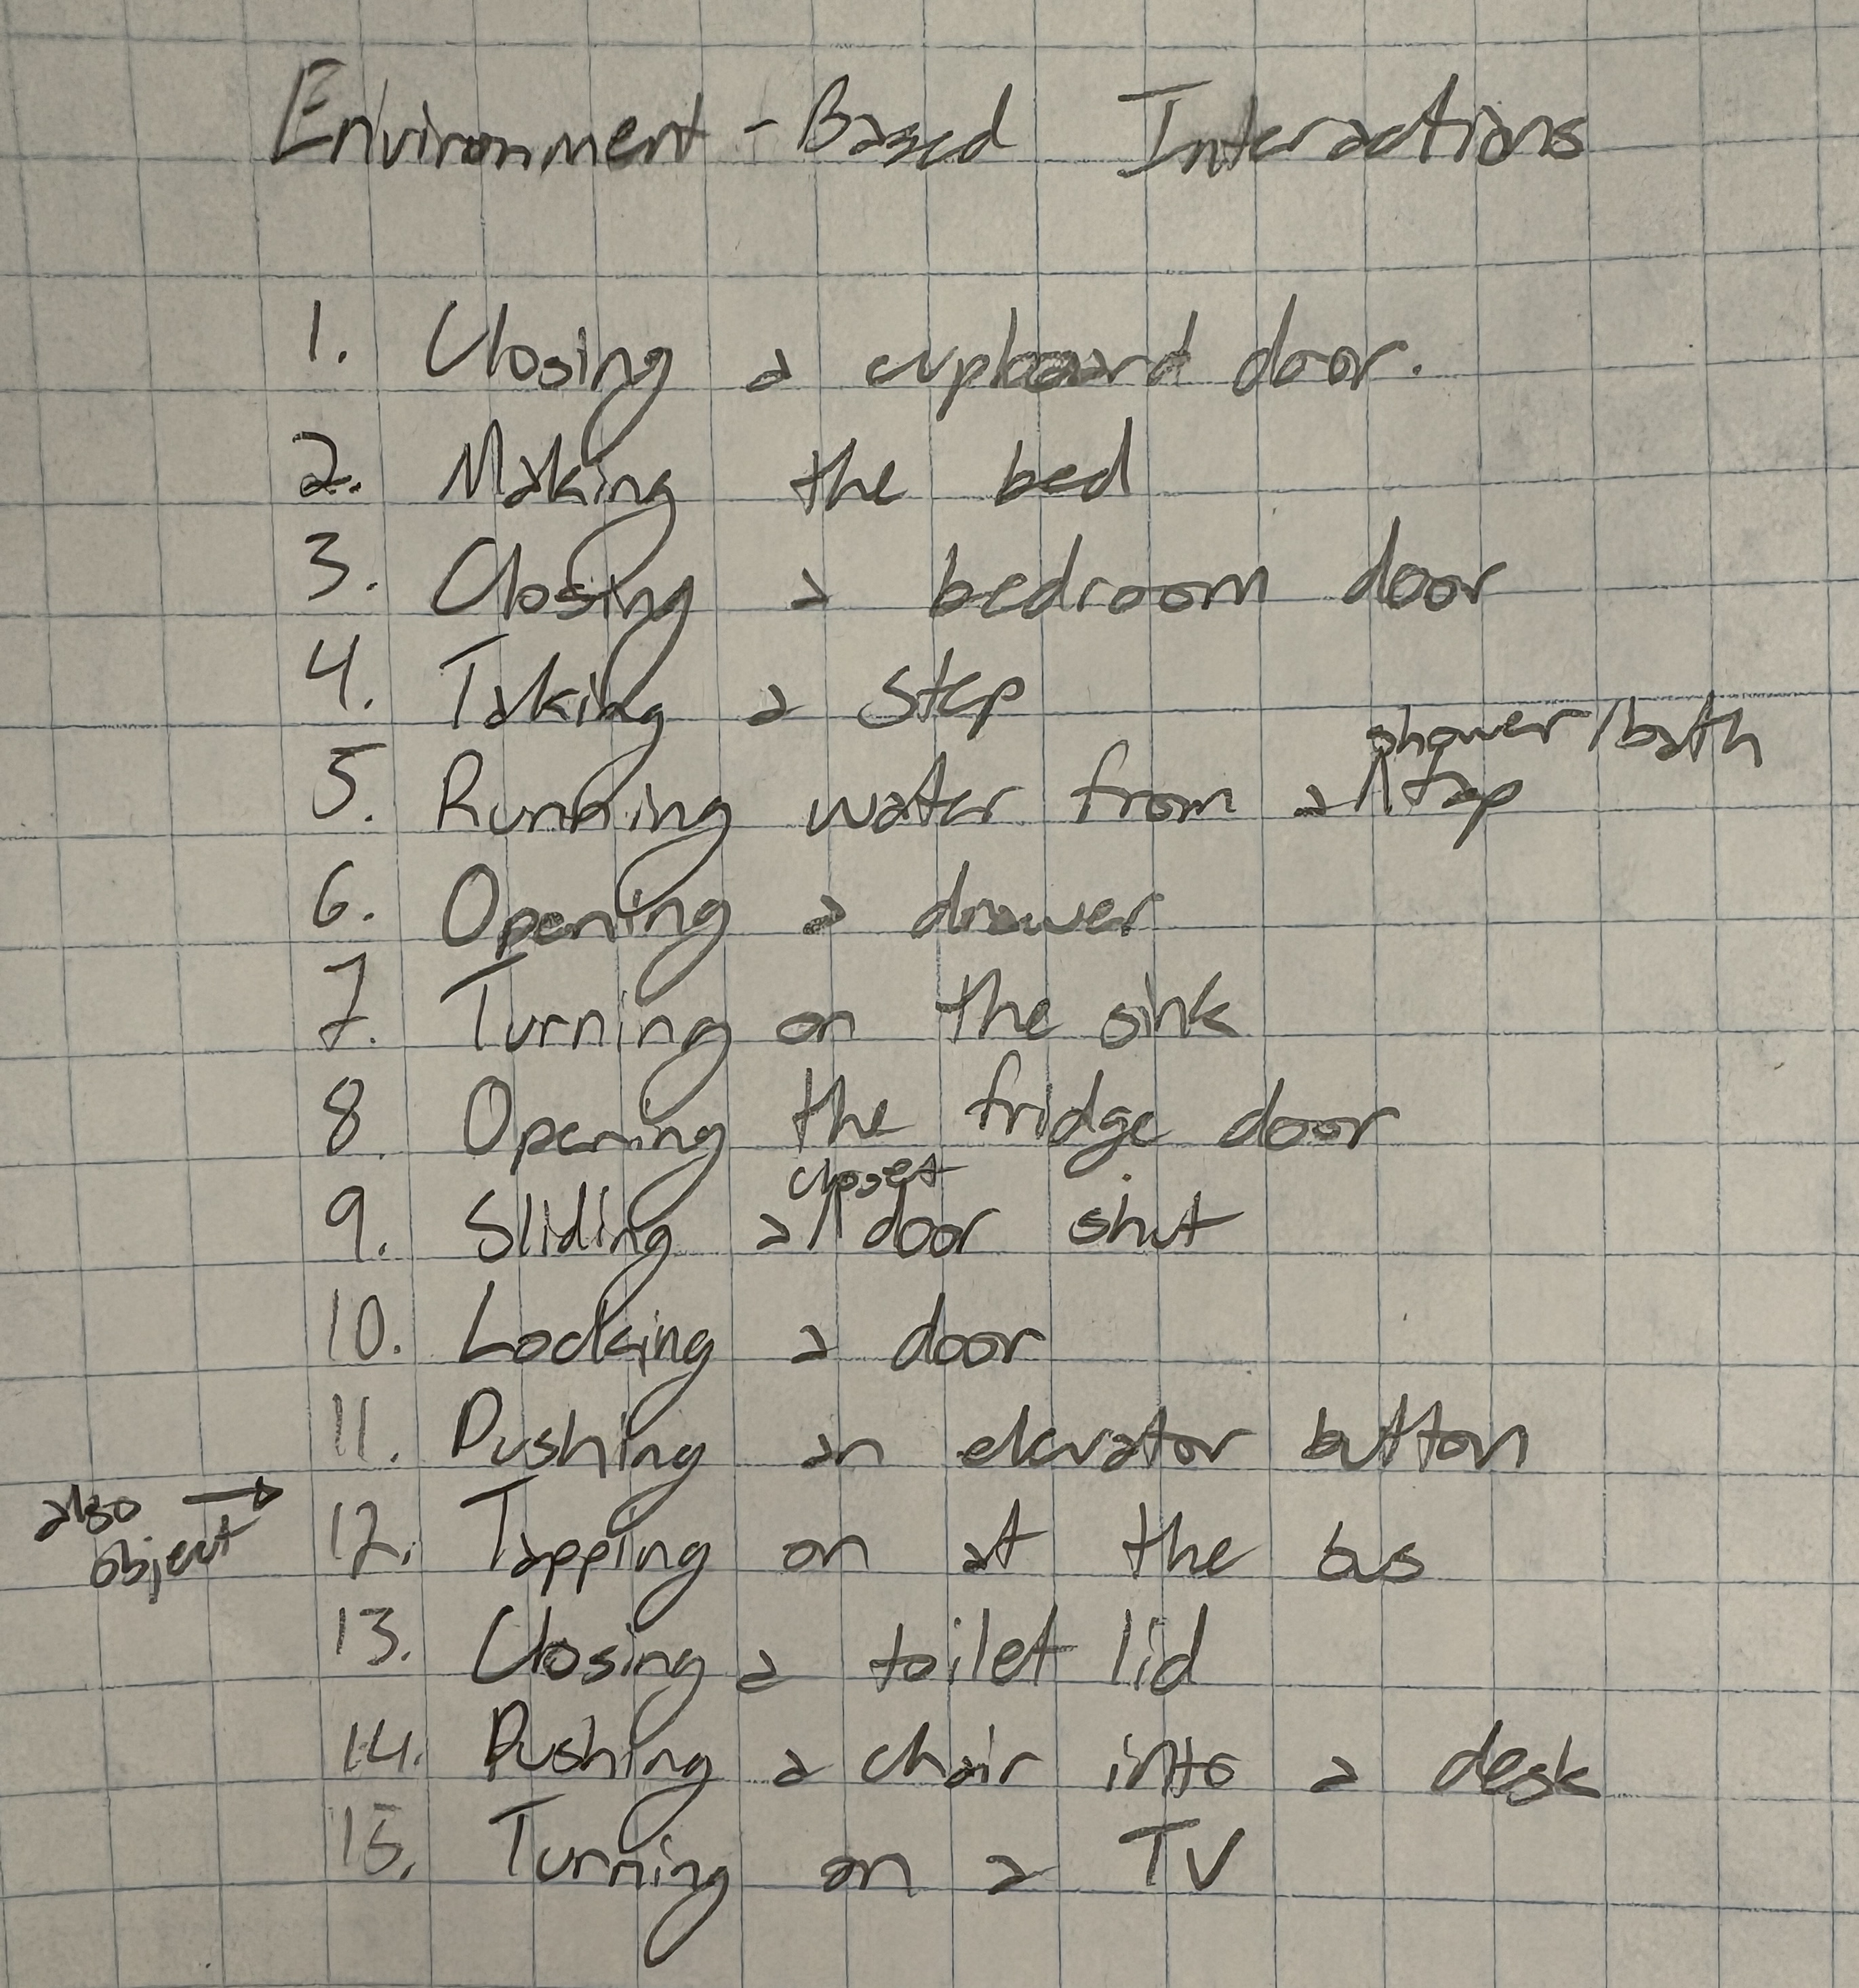 Environment-Based Interactions
1. Closing a cupboard door.
2. Making the bed
3. Closing a bedroom door
4. Taking a step
shower/bath
5. Running water from a ∧ tap
6. Opening a drawer
7. Turning on the sink
8. Opening the fridge door
closet
9. Sliding a ∧ door shut
10. Locking a door
11. Pushing an elevator button
also →
object
12. Tapping on at the bus
13. Closing a toilet lid
14. Pushing a chair into a desk
15. Turning on a TV